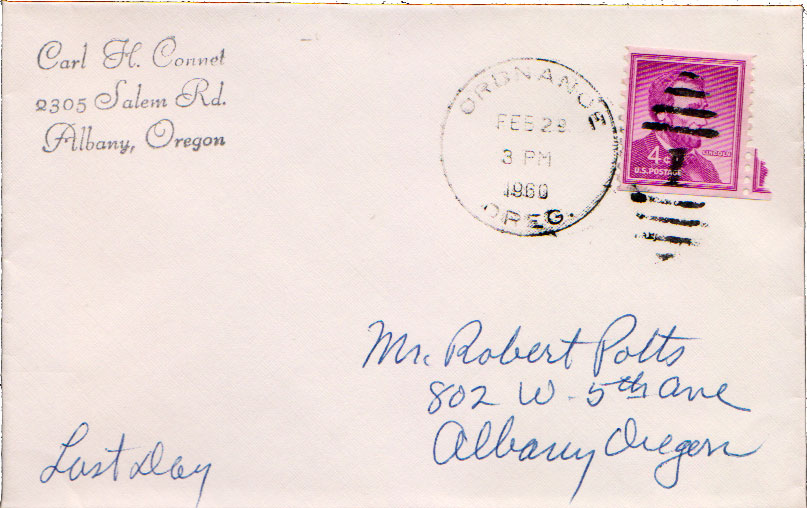 Carl H. Connet
2305 Salem Rd.
Albany, Oregon
ORDNANCE
FEB 29
3 PM
1960
OREG.
4¢
LINCOLN
U.S. POSTAGE
Mr. Robert Potts
802 W. 5th Ave
Albany Oregon
Last Day